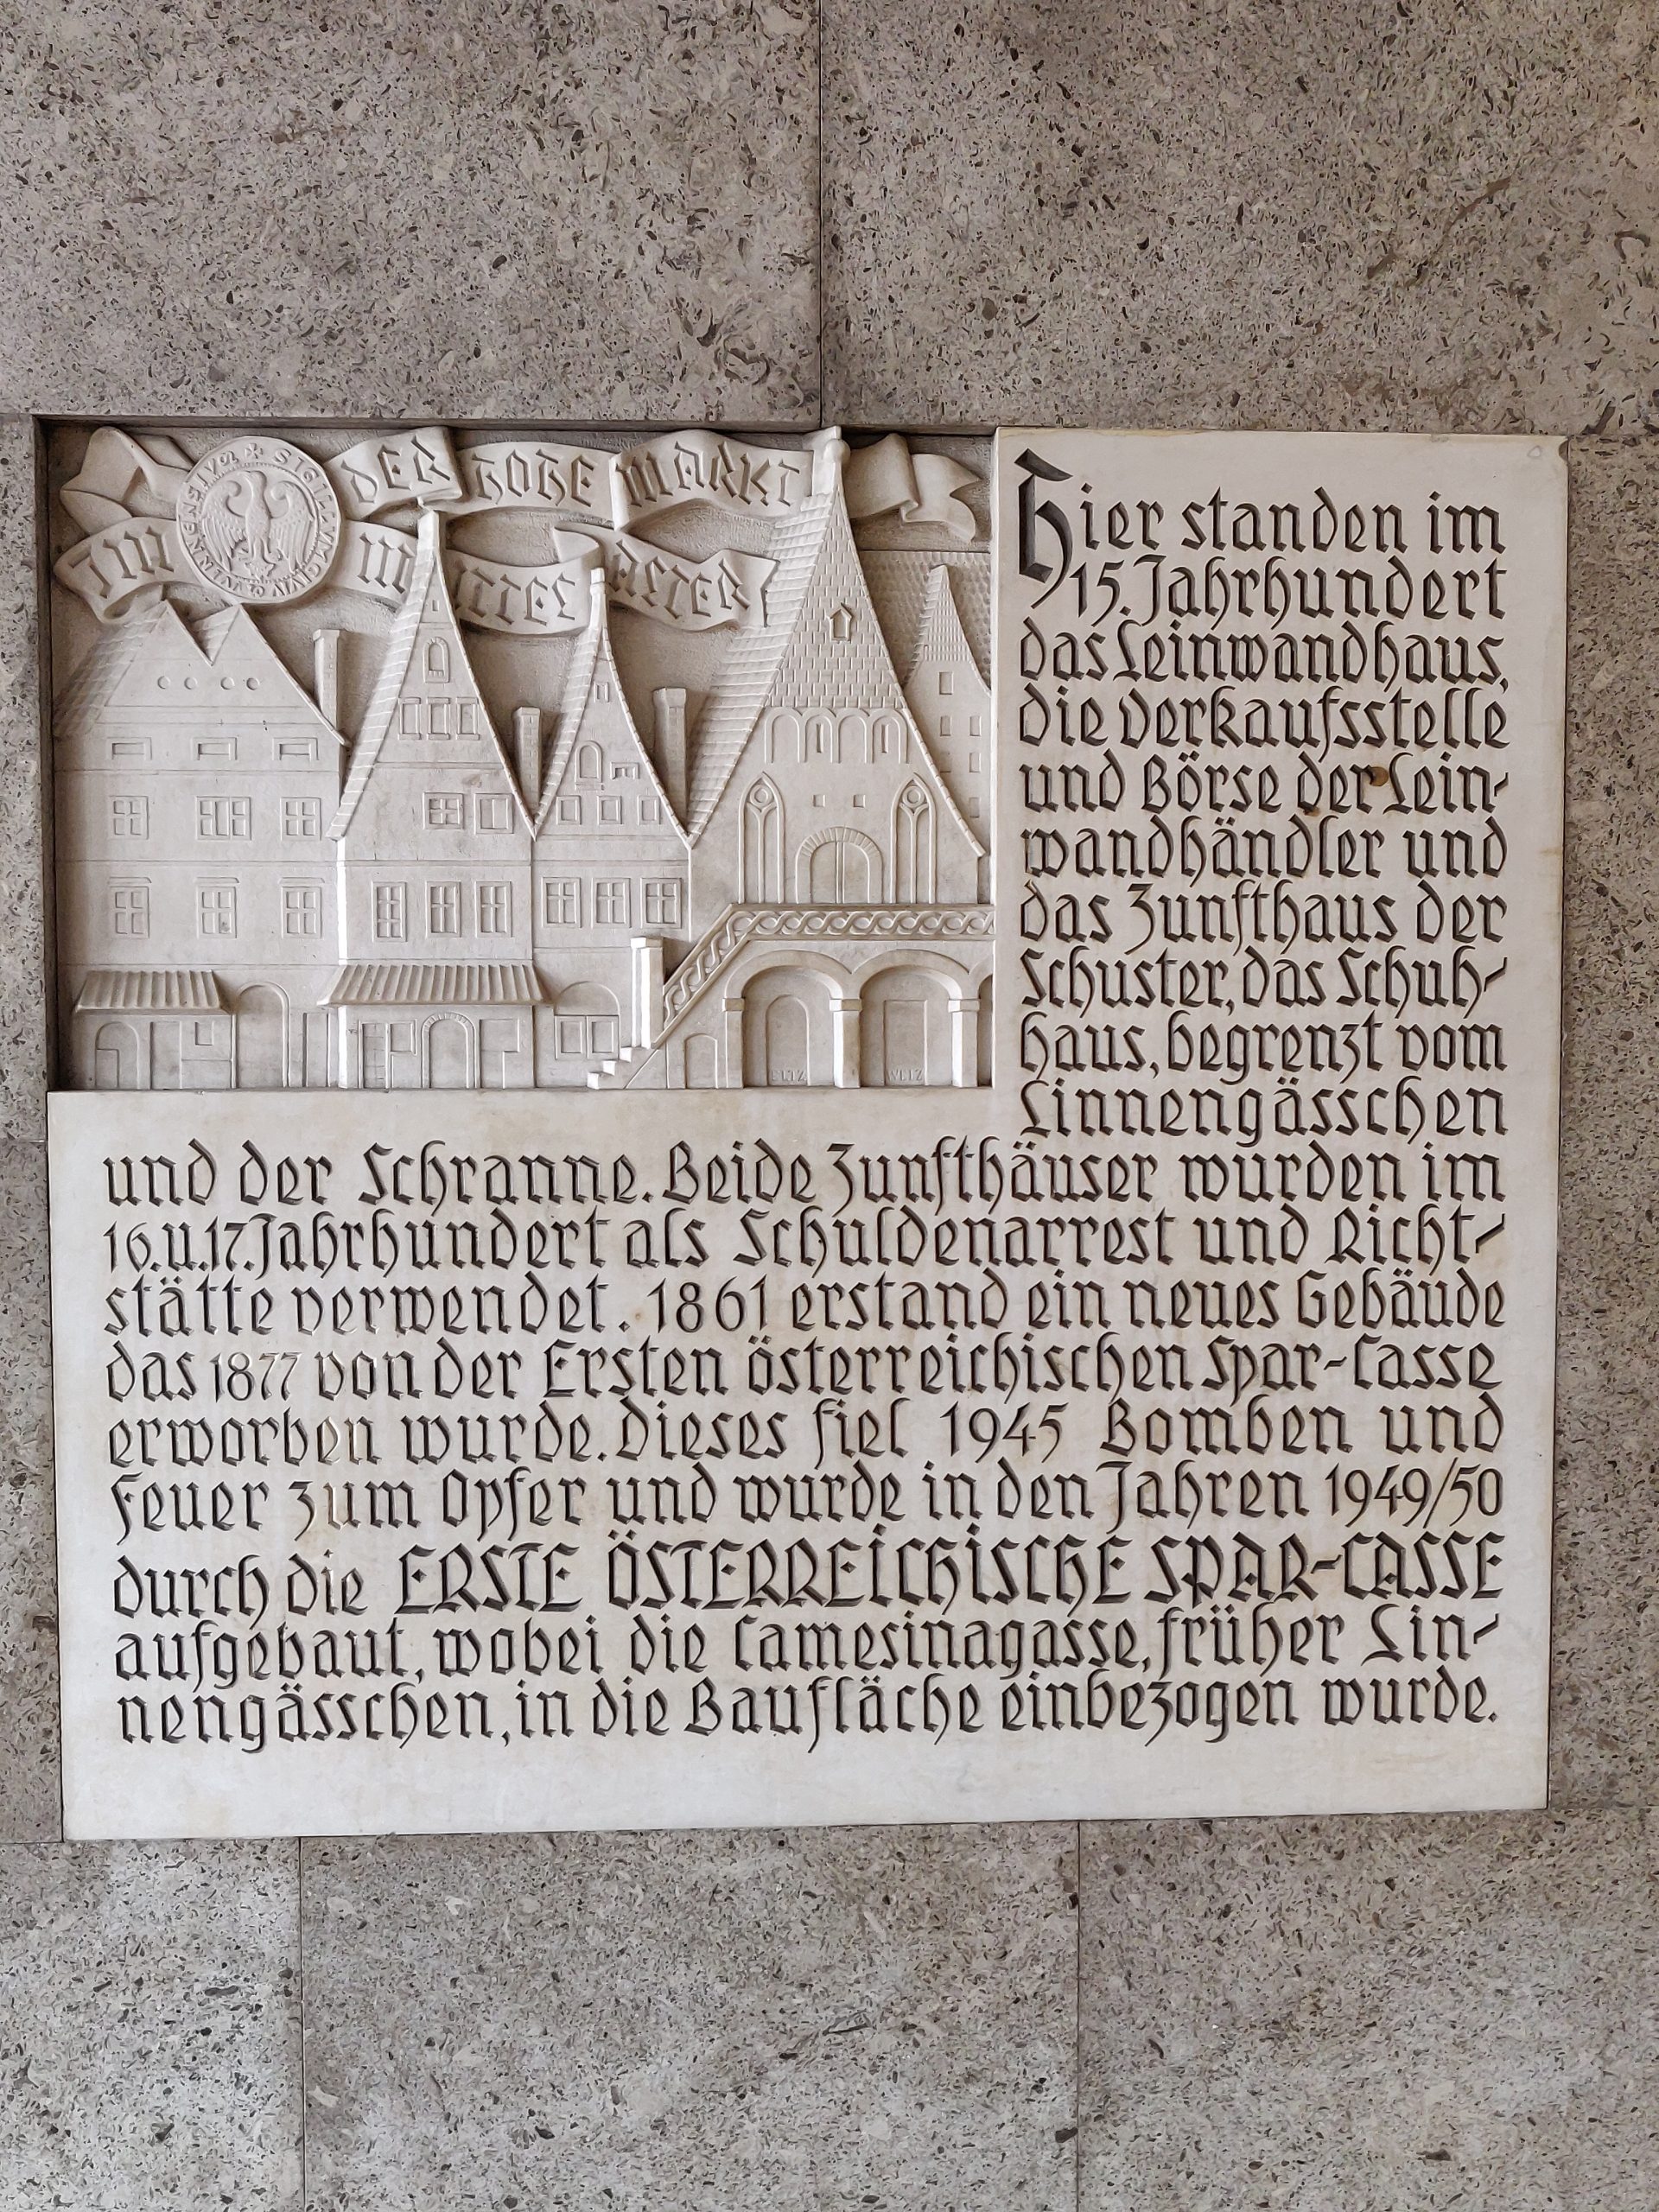 DER HOHE MARKT
IM MITTELALTER
Hier standen im
15. Jahrhundert
das Leinwandhaus,
die Verkaufsstelle
und Börse der Lein-
wandhändler und
das Zunfthaus der
Schuster, das Schuh-
haus, begrenzt vom
Linnengässchen
und der Schranne. Beide Zunfthäuser wurden im
16. u. 17. Jahrhundert als Schuldenarrest und Richt-
stätte verwendet. 1861 erstand ein neues Gebäude
das 1877 von der Ersten österreichischen Spar-Casse
erworben wurde. Dieses fiel 1945 Bomben und
Feuer zum Opfer und wurde in den Jahren 1949/50
durch die ERSTE ÖSTERREICHISCHE SPAR-CASSE
aufgebaut, wobei die Camesinagasse, früher Lin-
nengässchen, in die Baufläche einbezogen wurde.